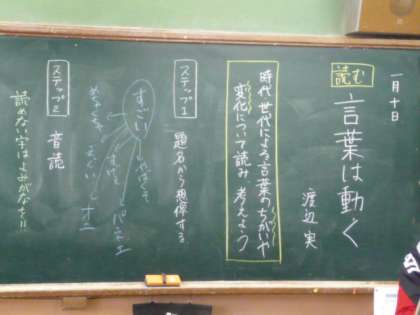 一月十日
読む 言葉は動く
渡辺 実
時代、世代による言葉のちがいや
変化について読み、考えよう
ステップ1 題名から想像する
すごい
やばくそ
バチェ
すげぇ
ステップ2 音読
読めない字はよみがなを!!